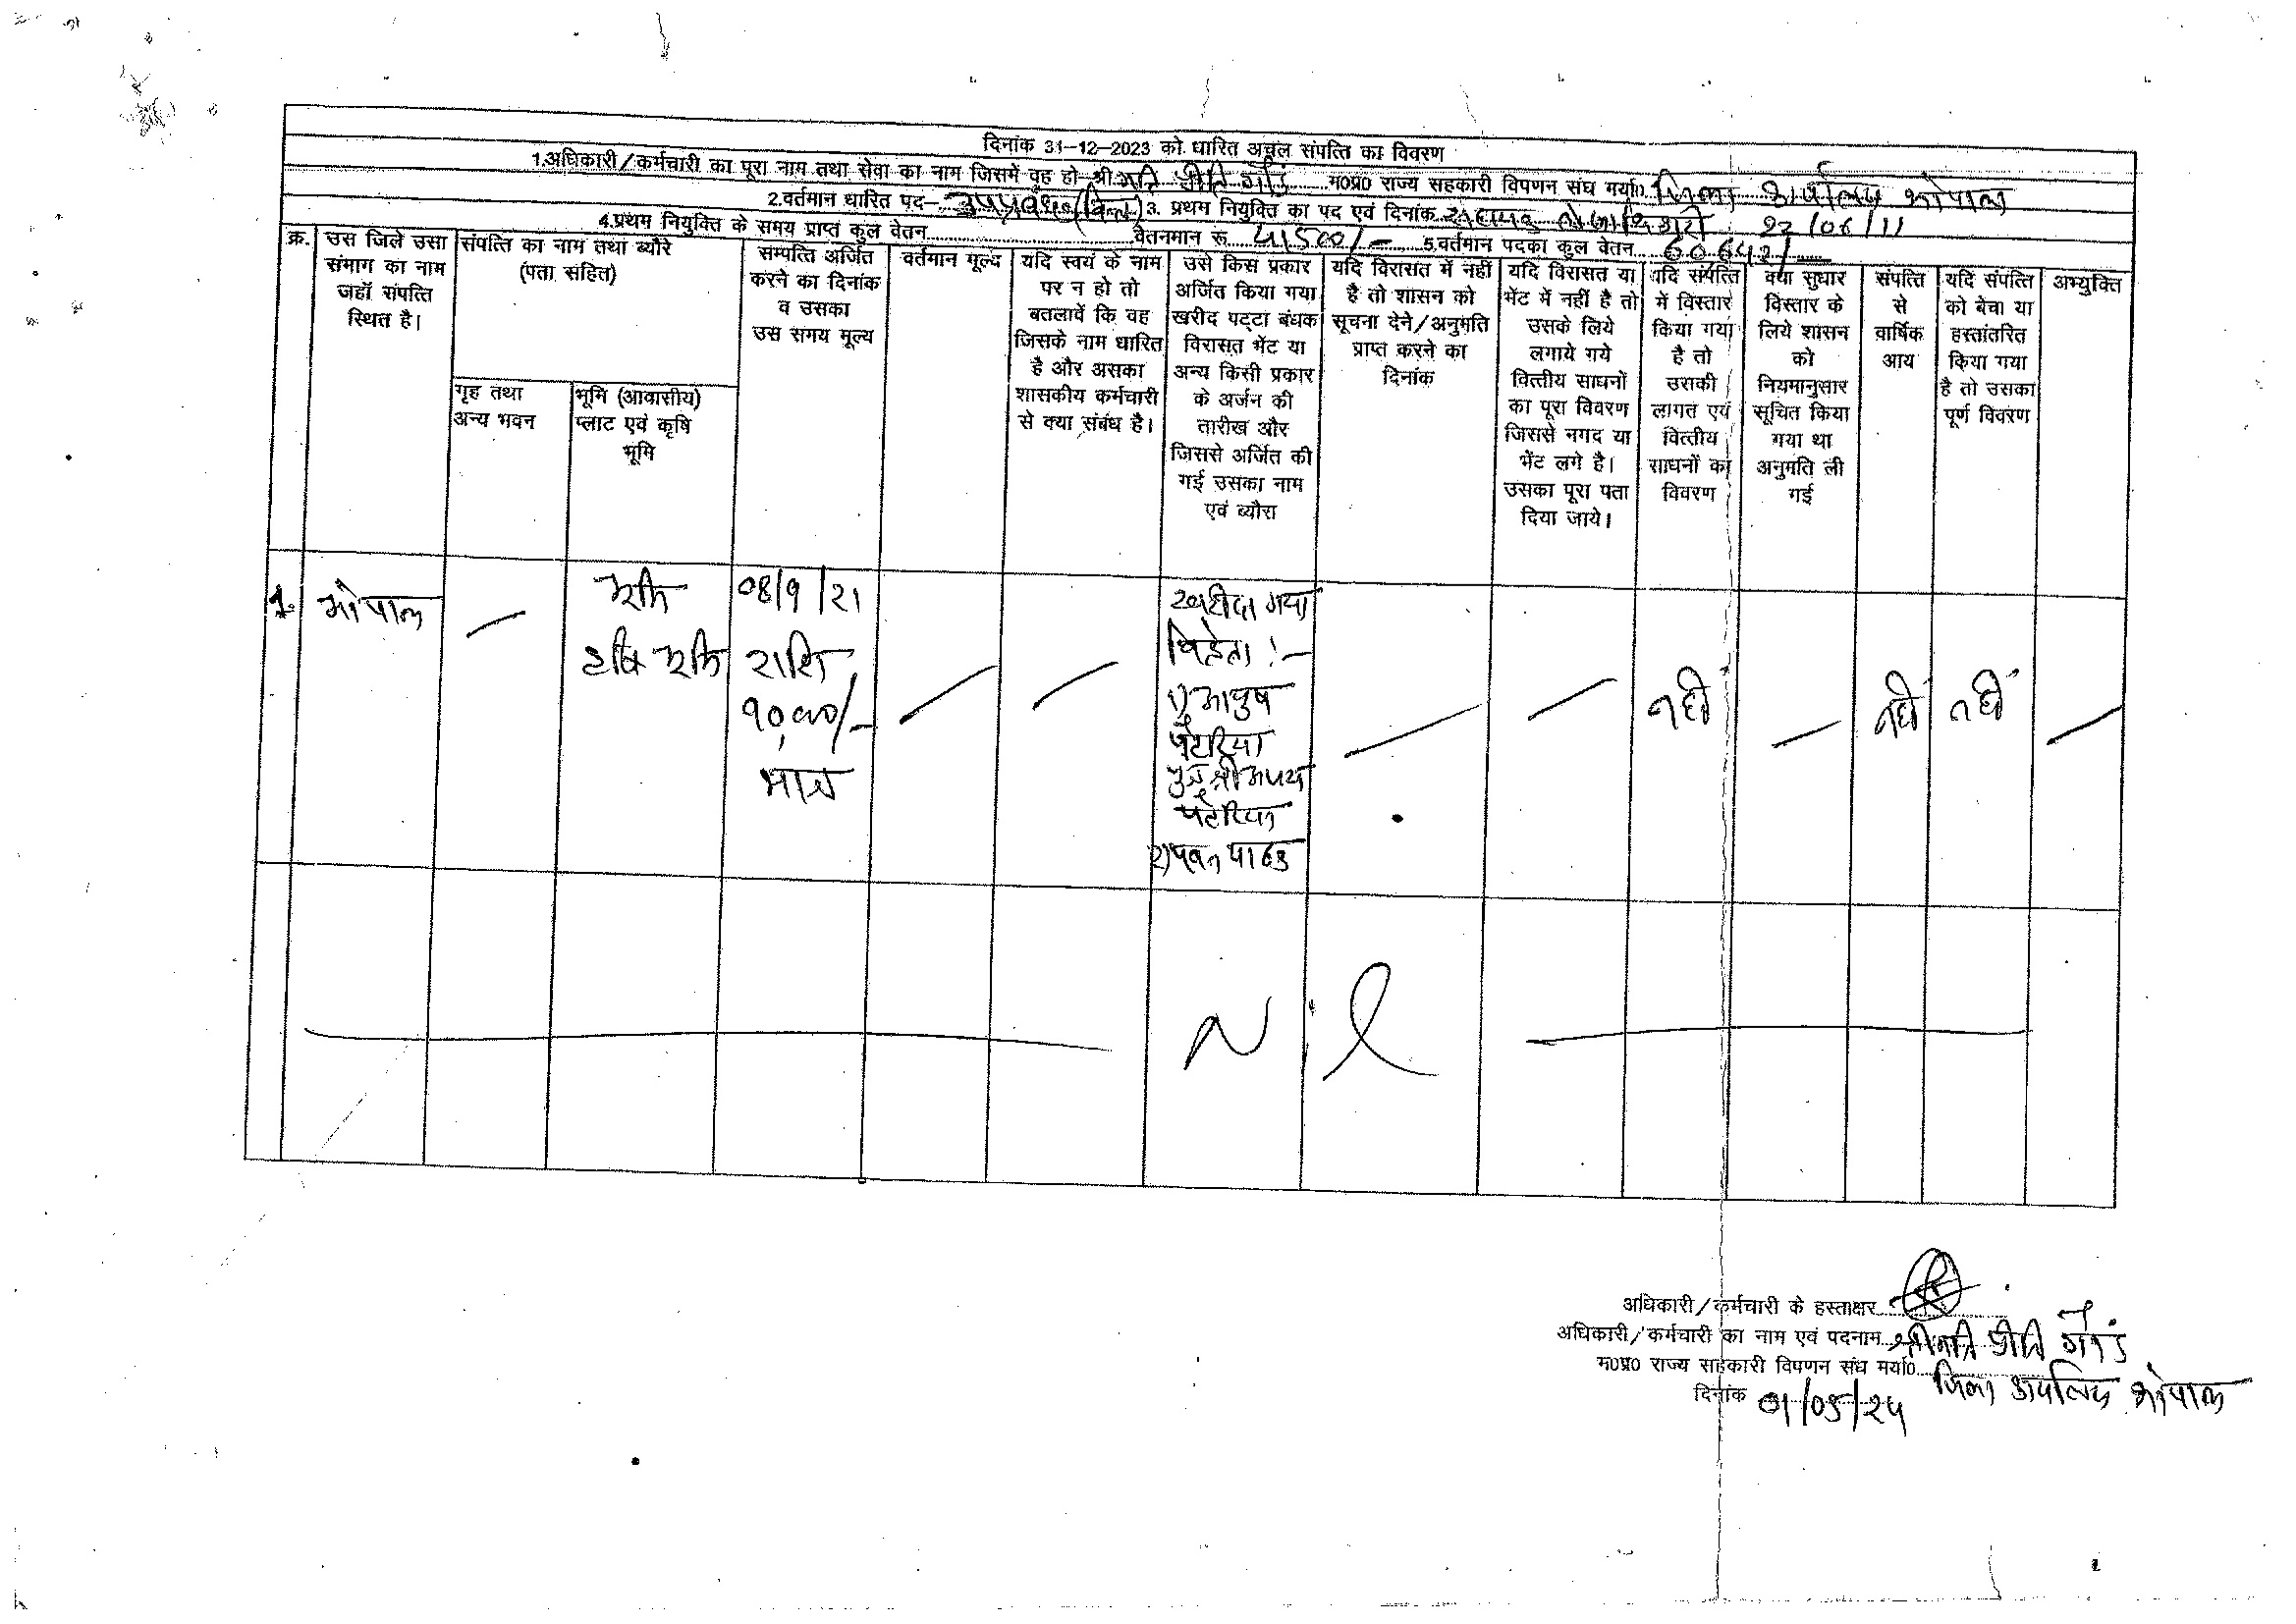 दिनांक 31-12-2023 को धारित अचल संपत्ति का विवरण
1.अधिकारी/कर्मचारी का पूरा नाम तथा सेवा का नाम जिसमें वह हो श्री मति प्रीति गौंड म0प्र0 राज्य सहकारी विपणन संघ मर्या0 जिला कार्यालय भोपाल
2.वर्तमान धारित पद- उपप्रबंधक(वित्त) 3. प्रथम नियुक्ति का पद एवं दिनांक सहायक लेखाधिकारी
4.प्रथम नियुक्ति के समय प्राप्त कुल वेतन वेतनमान रू 5.वर्तमान पदका कुल वेतन
क्र.
उस जिले उसा
संभाग का नाम
जहॉ संपत्ति
स्थित है।
संपत्ति का नाम तथा ब्यौरे
(पता सहित)
गृह तथा
अन्य भवन
भूमि (आवासीय)
प्लाट एवं कृषि
भूमि
सम्पत्ति अर्जित
करने का दिनांक
व उसका
उस समय मूल्य
वर्तमान मूल्य
यदि स्वयं के नाम
पर न हो तो
बतलावें कि वह
जिसके नाम धारित
है और असका
शासकीय कर्मचारी
से क्या संबंध है।
उसे किस प्रकार
अर्जित किया गया
खरीद पट्टा बंधक
विरासत भेंट या
अन्य किसी प्रकार
के अर्जन की
तारीख और
जिससे अर्जित की
गई उसका नाम
एवं ब्यौरा
यदि विरासत में नहीं
है तो शासन को
सूचना देने/अनुमति
प्राप्त करने का
दिनांक
यदि विरासत या
भेंट में नहीं है तो
उसके लिये
लगाये गये
वित्तीय साधनों
का पूरा विवरण
जिससे नगद या
भेंट लगे है।
उसका पूरा पता
दिया जाये।
यदि संपत्ति
में विस्तार
किया गया
है तो
उसकी
लागत एवं
वित्तीय
साधनों का
विवरण
क्या सुधार
विस्तार के
लिये शासन
को
नियमानुसार
सूचित किया
गया था
अनुमति ली
गई
संपत्ति
से
वार्षिक
आय
यदि संपत्ति
को बेचा या
हस्तांतरित
किया गया
है तो उसका
पूर्ण विवरण
अभ्युक्ति
1.
भोपाल
—
भूमि
कृषि भूमि
08/9/21
राशि
मात्र
—
—
खरीदा गया
विक्रेता :-
1) आयुष
पटेरिया
पुत्र श्री अभय
पटेरिया
2) पवन पाठक
—
—
नहीं
—
नहीं
नहीं
—
Nil
अधिकारी/कर्मचारी के हस्ताक्षर
अधिकारी/कर्मचारी का नाम एवं पदनाम श्रीमति प्रीति गौंड
म0प्र0 राज्य सहकारी विपणन संघ मर्या0 जिला कार्यालय भोपाल
दिनांक